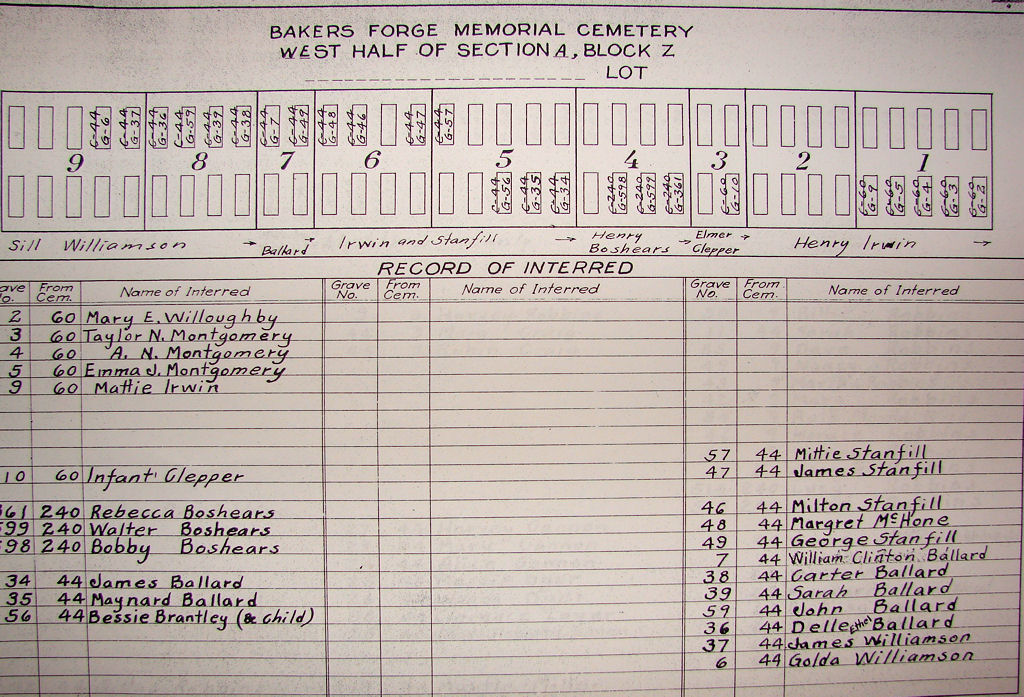 BAKERS FORGE MEMORIAL CEMETERY
WEST HALF OF SECTION A, BLOCK Z
LOT
C-44 G-6
C-44 G-37
C-44 G-36
C-44 G-59
C-44 G-39
C-44 G-38
C-44 G-7
C-44 G-49
C-44 G-48
C-44 G-46
C-44 G-47
C-44 G-57
9 8 7 6 5 4 3 2 1
C-44 G-56
C-44 G-35
C-44 G-34
C-240 G-598
C-240 G-599
C-240 G-361
C-60 G-10
C-60 G-9
C-60 G-5
C-60 G-4
C-60 G-3
C-60 G-2
Sill Williamson → Ballard → Irwin and Stanfill → Henry Boshears → Elmer Clepper → Henry Irwin →
RECORD OF INTERRED
ave No. From Cem. Name of Interred Grave No. From Cem. Name of Interred Grave No. From Cem. Name of Interred
2 60 Mary E. Willoughby
3 60 Taylor N. Montgomery
4 60 A. N. Montgomery
5 60 Emma J. Montgomery
9 60 Mattie Irwin
10 60 Infant Clepper
361 240 Rebecca Boshears
599 240 Walter Boshears
598 240 Bobby Boshears
34 44 James Ballard
35 44 Maynard Ballard
56 44 Bessie Brantley (& child)
57 44 Mittie Stanfill
47 44 James Stanfill
46 44 Milton Stanfill
48 44 Margret McHone
49 44 George Stanfill
7 44 William Clinton Ballard
38 44 Carter Ballard
39 44 Sarah Ballard
59 44 John Ballard
36 44 Delle Ethel Ballard
37 44 James Williamson
6 44 Golda Williamson